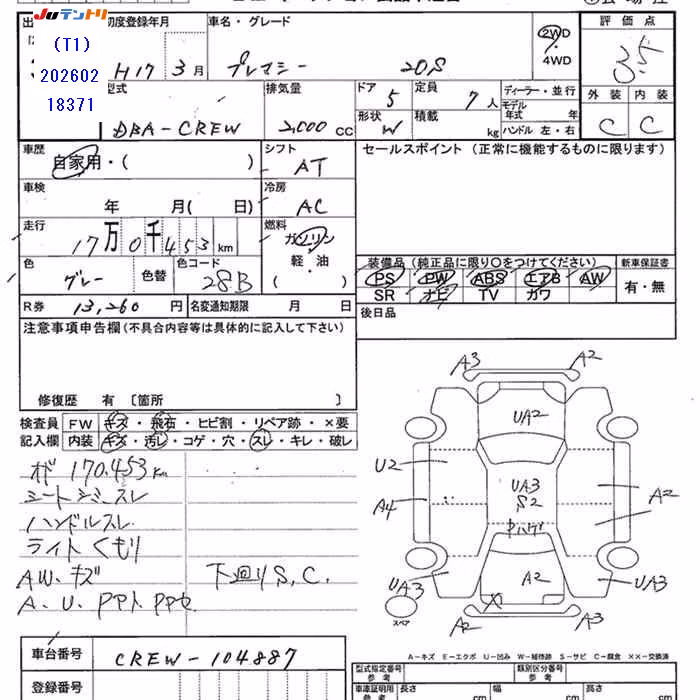 JUテントリ
(T1)
202602
18371
初度登録年月
H17 3月
車名・グレード
プレマシー 20S
2WD
・
4WD
評価点
3.5
型式
DBA-CREW
排気量
2,000 CC
ドア 5
形状 W
定員 7人
積載 kg
ディーラー・並行
モデル
年式 年
ハンドル 左・右
外装 内装
C C
車歴
自家用・( )
シフト
AT
セールスポイント (正常に機能するものに限ります)
車検
年 月( 日)
冷房
AC
走行
17万0千453km
燃料
ガソリン
・
軽・油
( )
色
グレー
色替
色コード
28B
装備品(純正品に限り○をつけてください)
PS PW ABS エアB AW
SR ナビ TV カワ
新車保証書
有・無
R券 13,260 円
名変通知期限 月 日
後日品
注意事項申告欄(不具合内容等は具体的に記入して下さい)
修復歴 有 〔箇所 〕
検査員
記入欄
FW キズ・飛石・ヒビ割・リペア跡・×要
内装 キズ・汚レ・コゲ・穴・スレ・キレ・破レ
オド 170.453Km
シートシミ・スレ
ハンドルスレ
ライトくもり
AW、キズ 下廻りS、C、
A、U、PPト PPセ
A3 A2
UA2
U2
UA3
S2
A4
A2
中ハゲ
UA3
A2
UA3
X
A2 A3
スペア
A-キズ E-エクボ U-凹み W-補修跡 S-サビ C-腐食 ××-交換済
車台番号
CREW-104887
登録番号
型式指定番号
参考
類別区分番号
参考
車庫証明用
参考
長さ cm 幅 cm 高さ cm